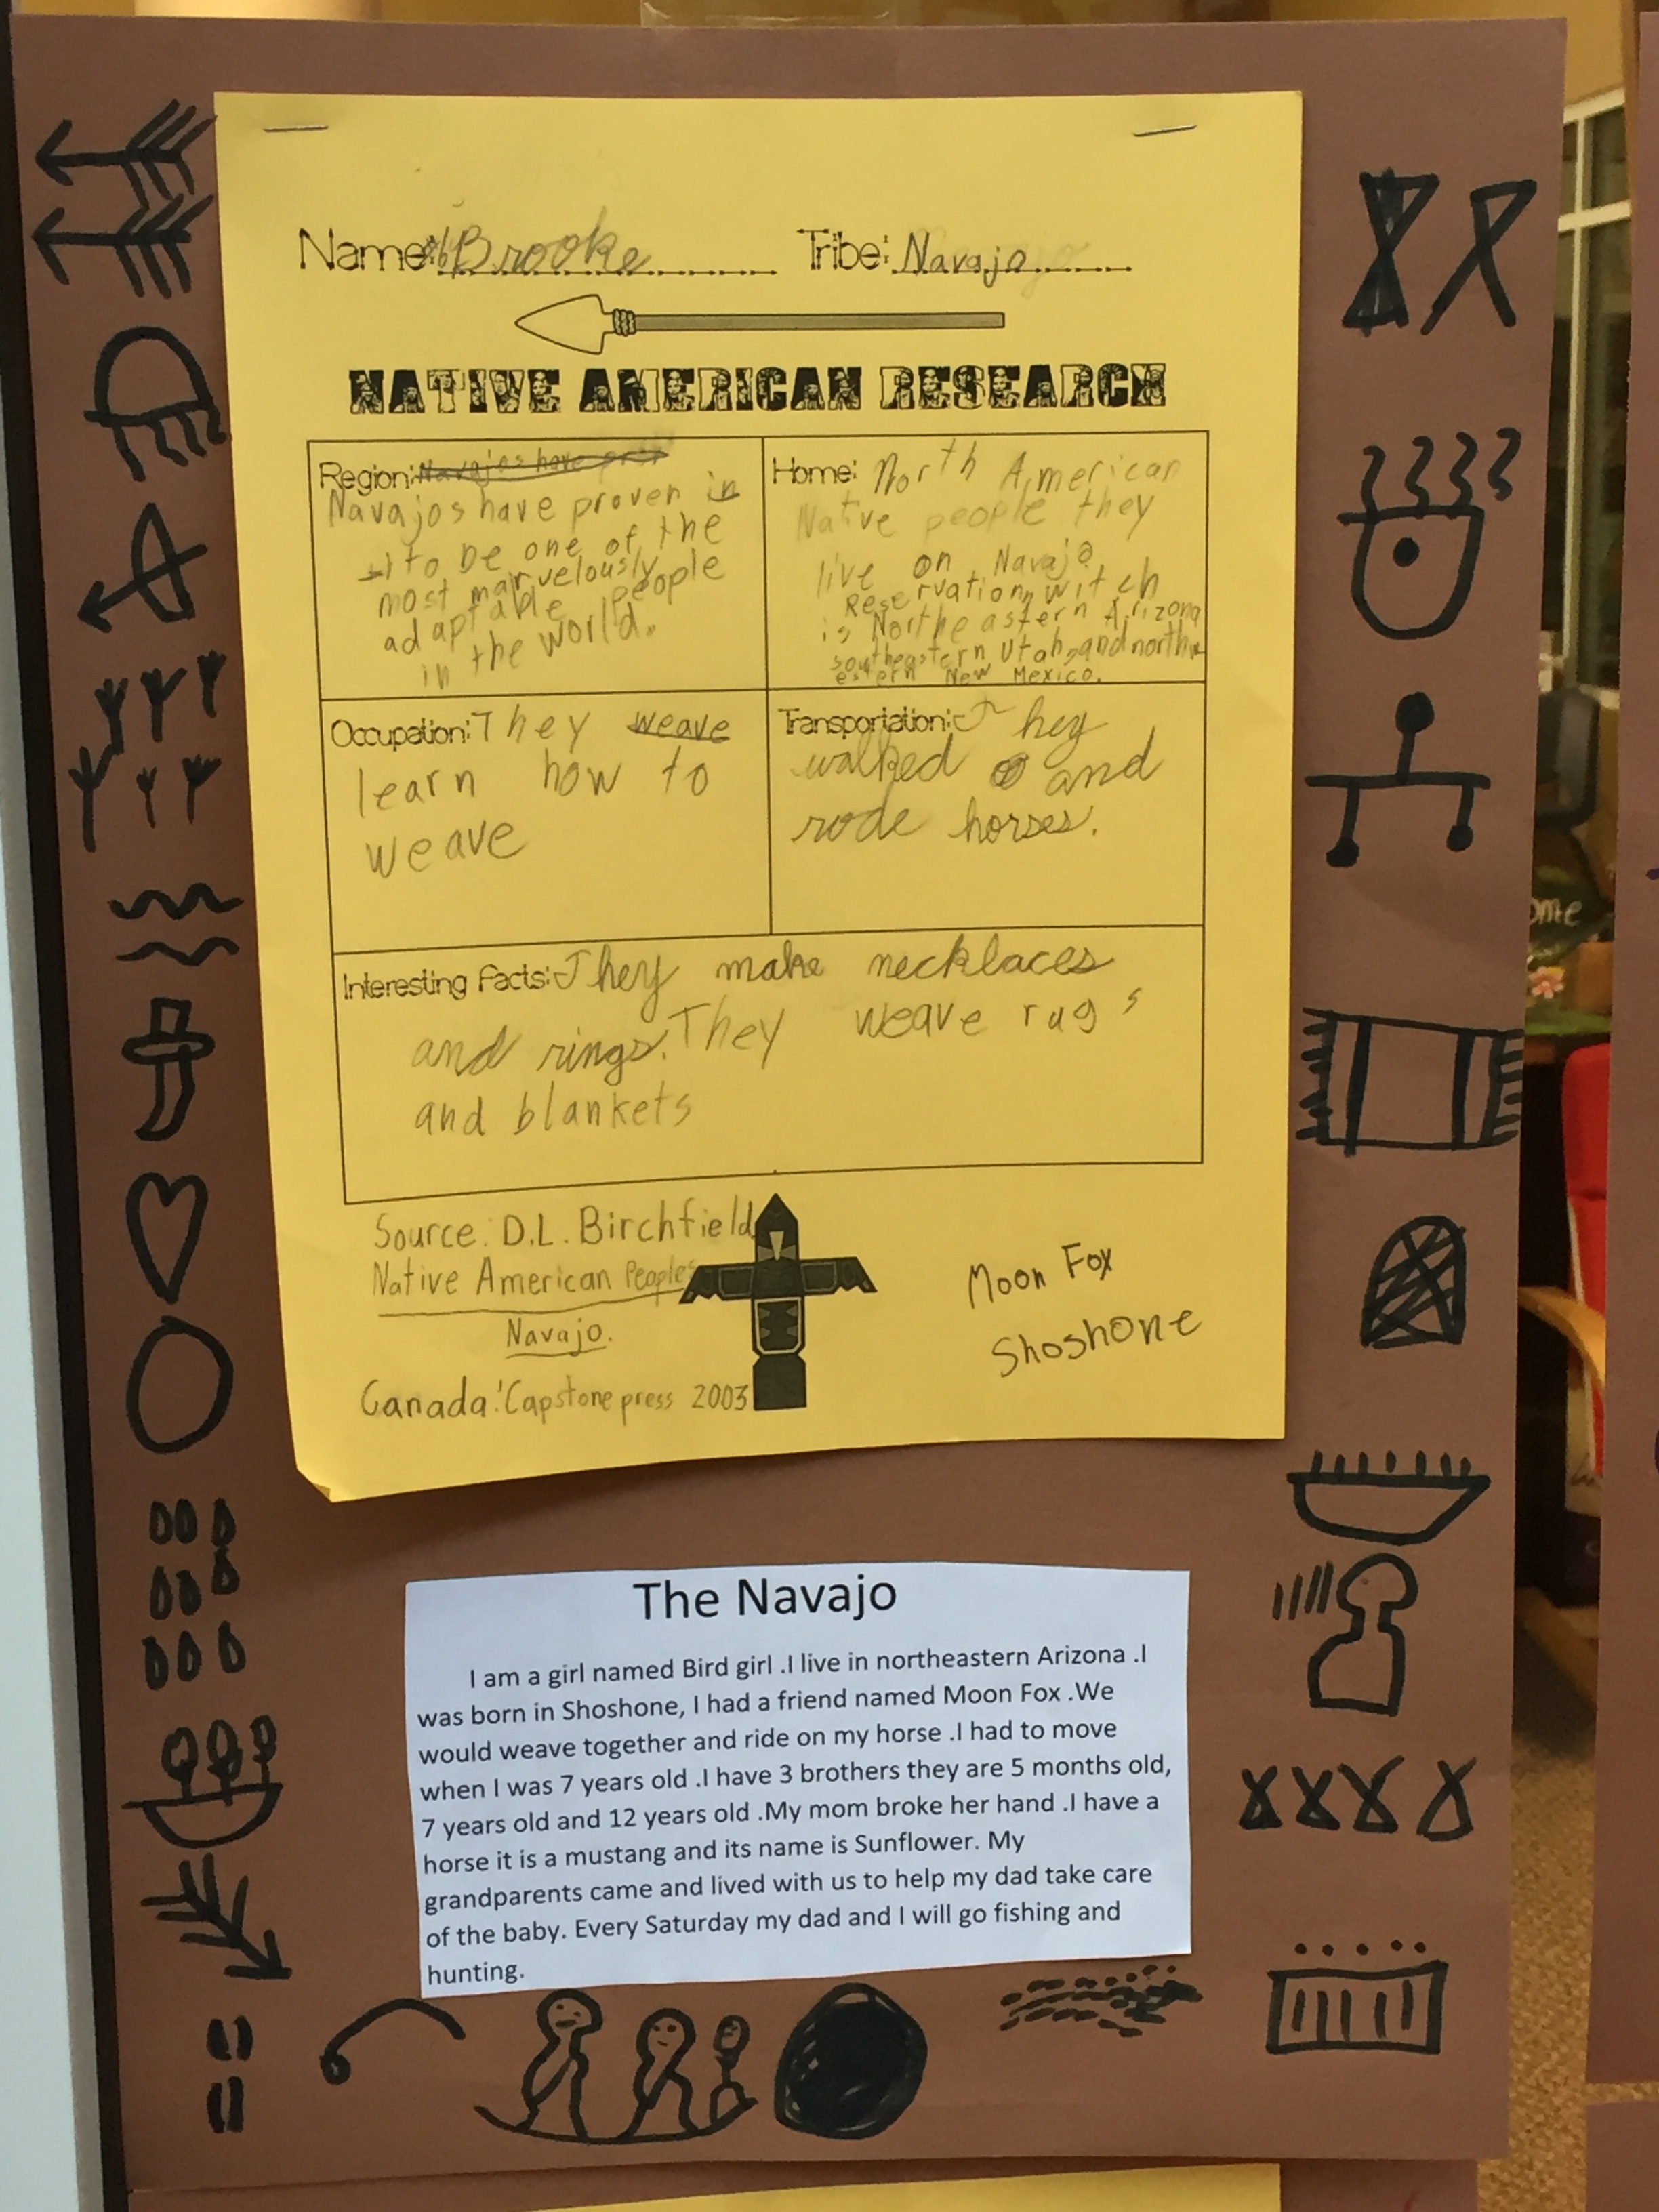 Name: Brooke Tribe: Navajo
NATIVE AMERICAN RESEARCH
Region: Navajos have
Navajos have proven in
to be one of the
most marvelously
adaptable people
in the world.
Home: North American
Native people they
live on Navajo
Reservation, witch
is Northeastern Arizona
southeastern Utah, and northw
estern New Mexico.
Occupation: They weave
learn how to
weave
Transportation: They
walked and
rode horses.
Interesting Facts: They make necklaces
and rings. They weave rugs
and blankets
Source: D.L. Birchfield
Native American Peoples
Navajo.
Canada: Capstone press 2003
Moon Fox
Shoshone
The Navajo
I am a girl named Bird girl .I live in northeastern Arizona .I
was born in Shoshone, I had a friend named Moon Fox .We
would weave together and ride on my horse .I had to move
when I was 7 years old .I have 3 brothers they are 5 months old,
7 years old and 12 years old .My mom broke her hand .I have a
horse it is a mustang and its name is Sunflower. My
grandparents came and lived with us to help my dad take care
of the baby. Every Saturday my dad and I will go fishing and
hunting.